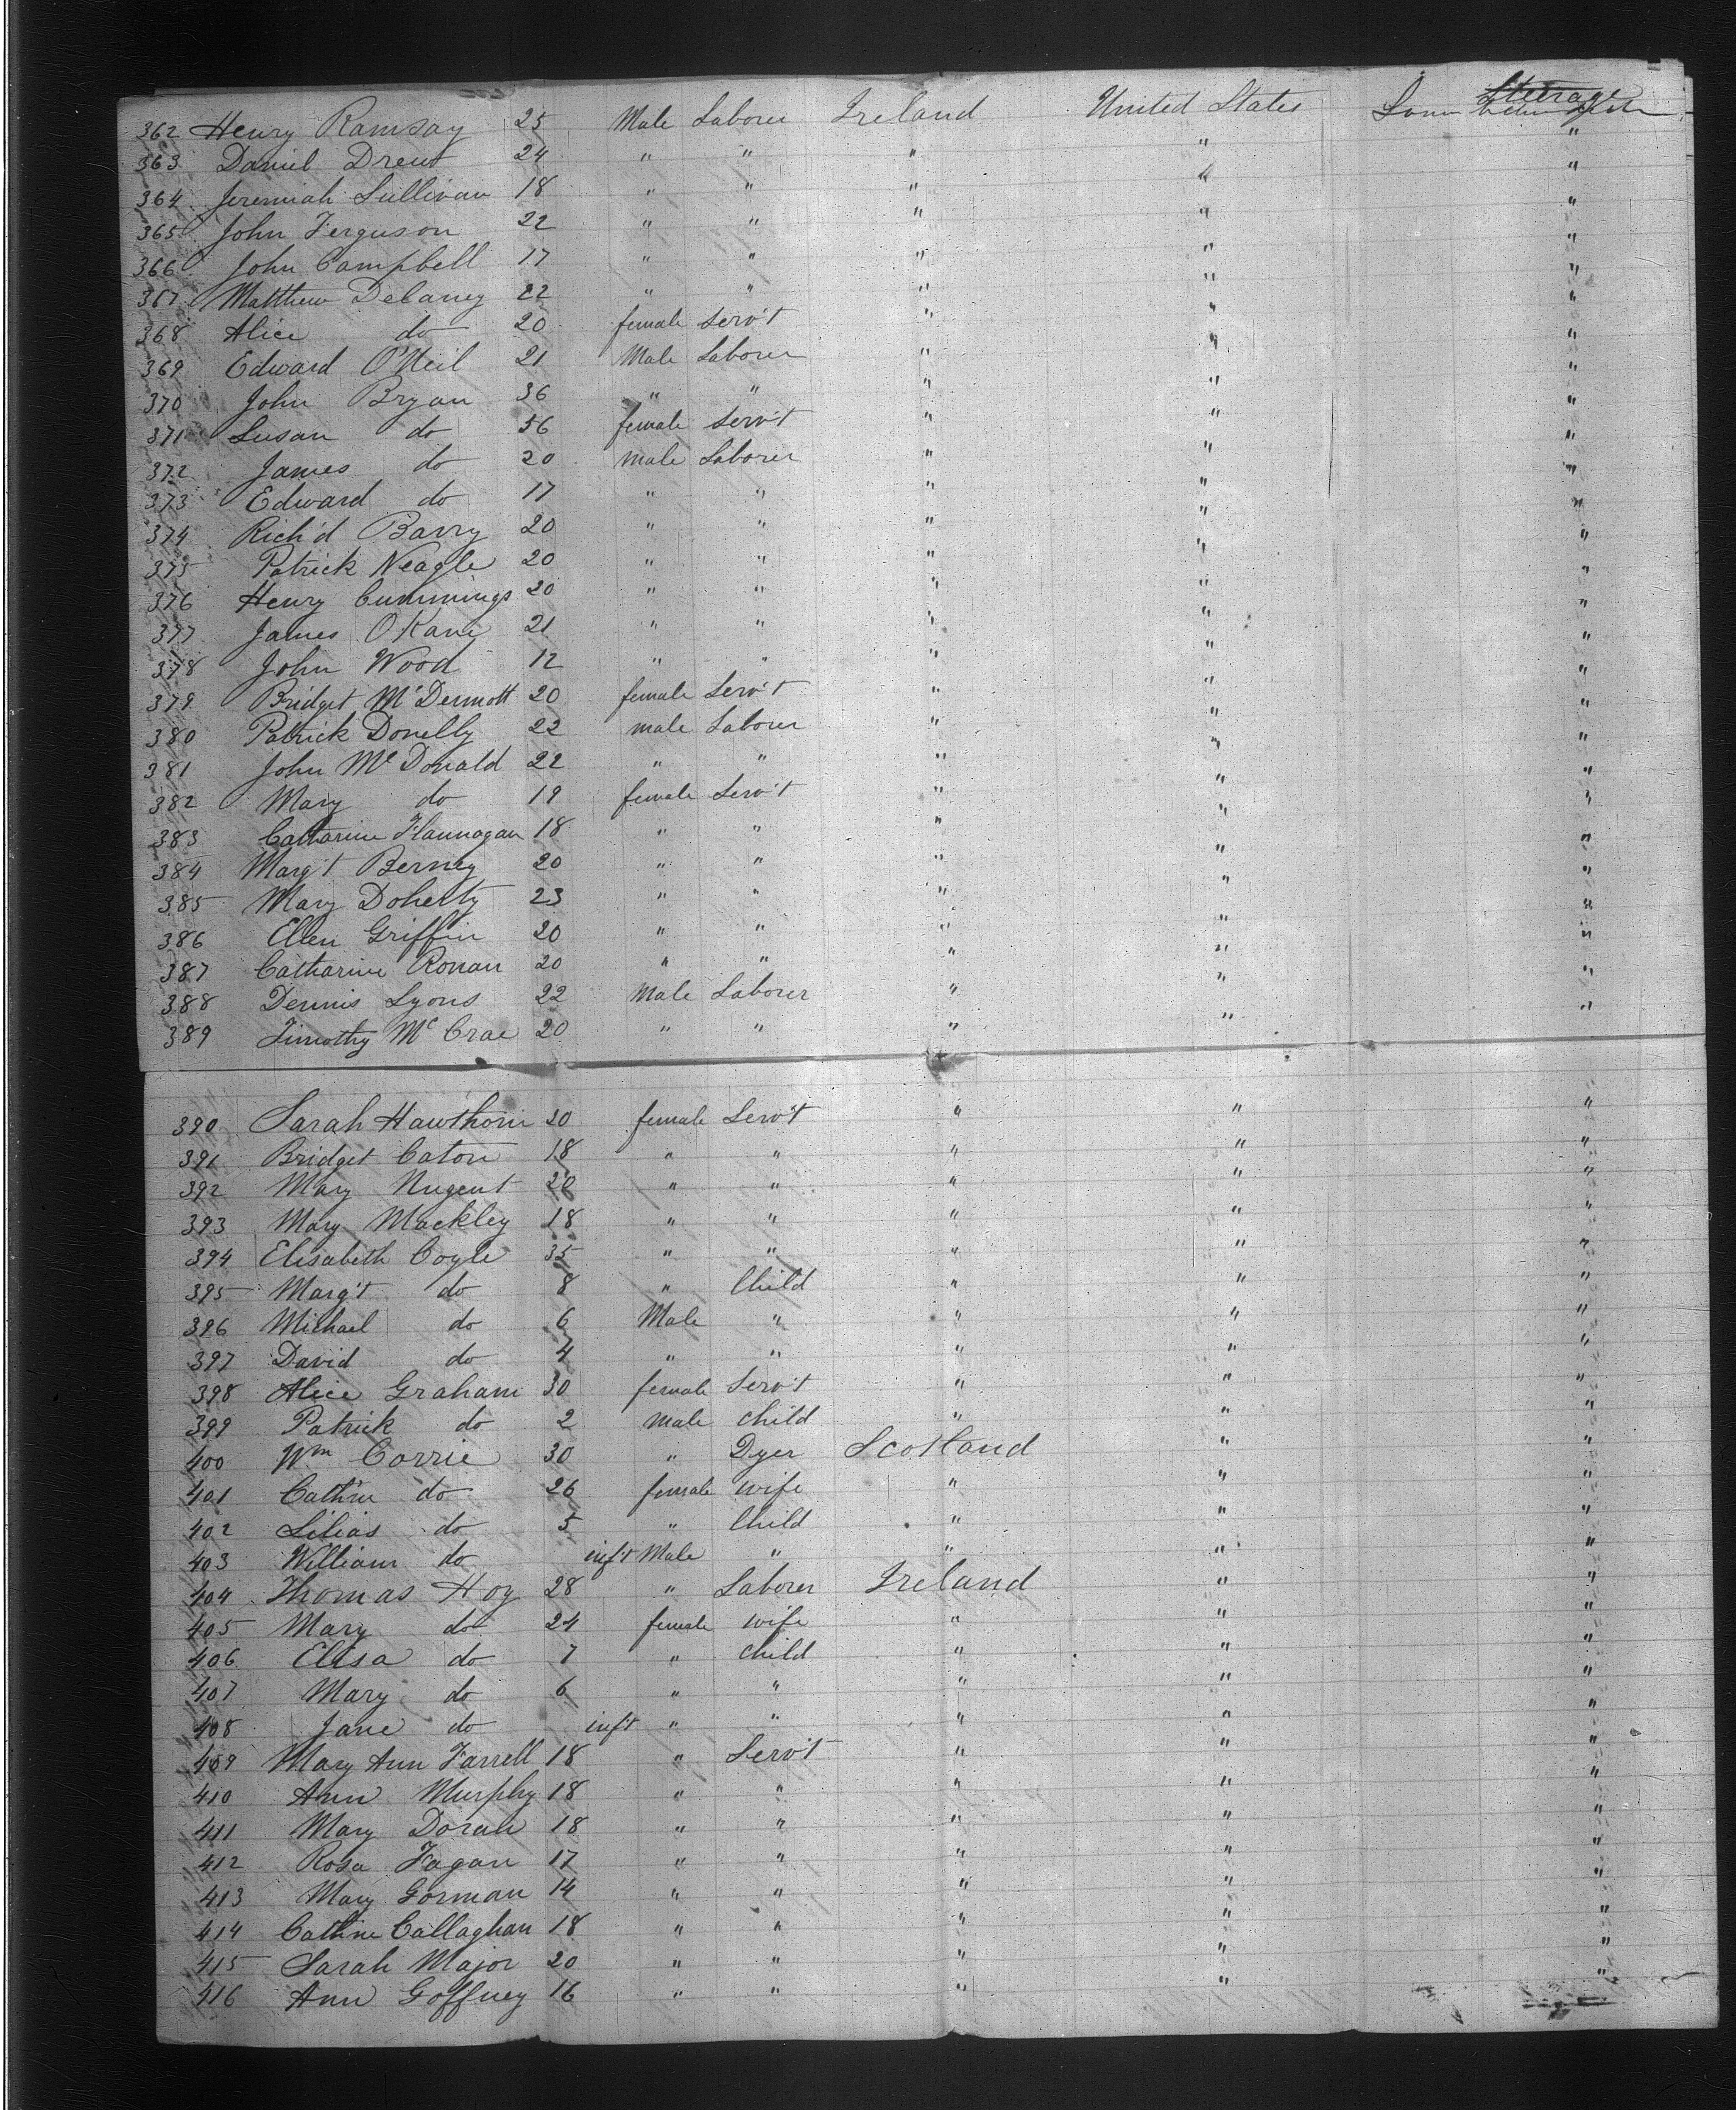 362 Henry Ramsay 25 Male Laborer Ireland United States Steerage Lower between Decks
363 Daniel Drew 24 " " " " "
364 Jeremiah Sullivan 18 " " " " "
365 John Ferguson 22 " " " " "
366 John Campbell 17 " " " " "
367 Matthew Delaney 22 " " " " "
368 Alice do 20 female Serv't " " "
369 Edward O'Neil 21 Male Laborer " " "
370 John Bryan 36 " " " " "
371 Susan do 56 female Serv't " " "
372 James do 20 male Laborer " " "
373 Edward do 17 " " " " "
374 Rich'd Barry 20 " " " " "
375 Patrick Neagle 20 " " " " "
376 Henry Cummings 20 " " " " "
377 James O'Kane 21 " " " " "
378 John Wood 12 " " " " "
379 Bridget McDermott 20 female Serv't " " "
380 Patrick Donelly 22 male Laborer " " "
381 John McDonald 22 " " " " "
382 Mary do 19 female Serv't " " "
383 Catharine Flannagan 18 " " " " "
384 Marg't Berney 20 " " " " "
385 Mary Doherty 23 " " " " "
386 Ellen Griffin 20 " " " " "
387 Catharine Ronan 20 " " " " "
388 Dennis Lyons 22 Male Laborer " " "
389 Timothy McCrae 20 " " " " "
390 Sarah Hawthorn 20 female Serv't " " "
391 Bridget Caton 18 " " " " "
392 Mary Nugent 20 " " " " "
393 Mary Mackley 18 " " " " "
394 Elisabeth Coyle 35 " " " " "
395 Marg't do 8 " Child " " "
396 Michael do 6 Male " " " "
397 David do 4 " " " " "
398 Alice Graham 30 female Serv't " " "
399 Patrick do 2 male child " " "
400 Wm Corrie 30 " Dyer Scotland " "
401 Cath'n do 26 female wife " " "
402 Lilias do 5 " Child " " "
403 William do inf't Male " " " "
404 Thomas Hoy 28 " Laborer Ireland " "
405 Mary do 24 female wife " " "
406 Elisa do 7 " child " " "
407 Mary do 6 " " " " "
408 Jane do inf't " " " " "
409 Mary Ann Farrell 18 " Serv't " " "
410 Ann Murphy 18 " " " " "
411 Mary Doran 18 " " " " "
412 Rosa Fagan 17 " " " " "
413 Mary Gorman 14 " " " " "
414 Cathne Callaghan 18 " " " " "
415 Sarah Major 20 " " " " "
416 Ann Goffney 16 " " " " "